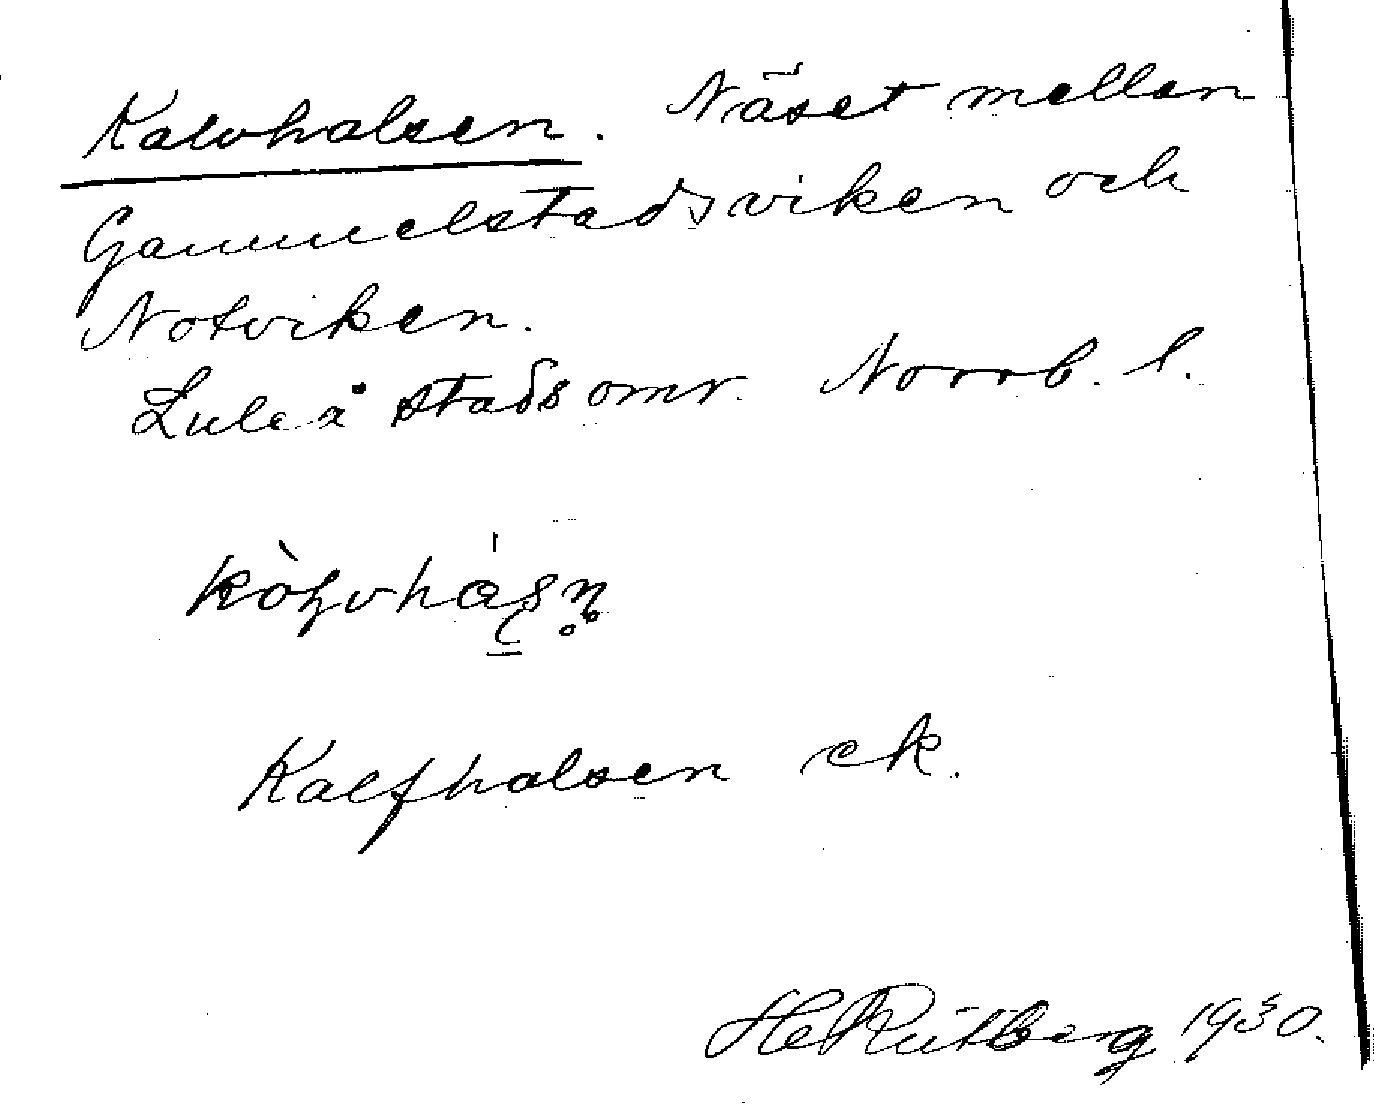 Kalvhalsen. Näset mellan
Gammelstadsviken och
Notviken.
Luleå stadsomr. Norrb. l.
Kalfhalsen ek.
Rutberg 1930.